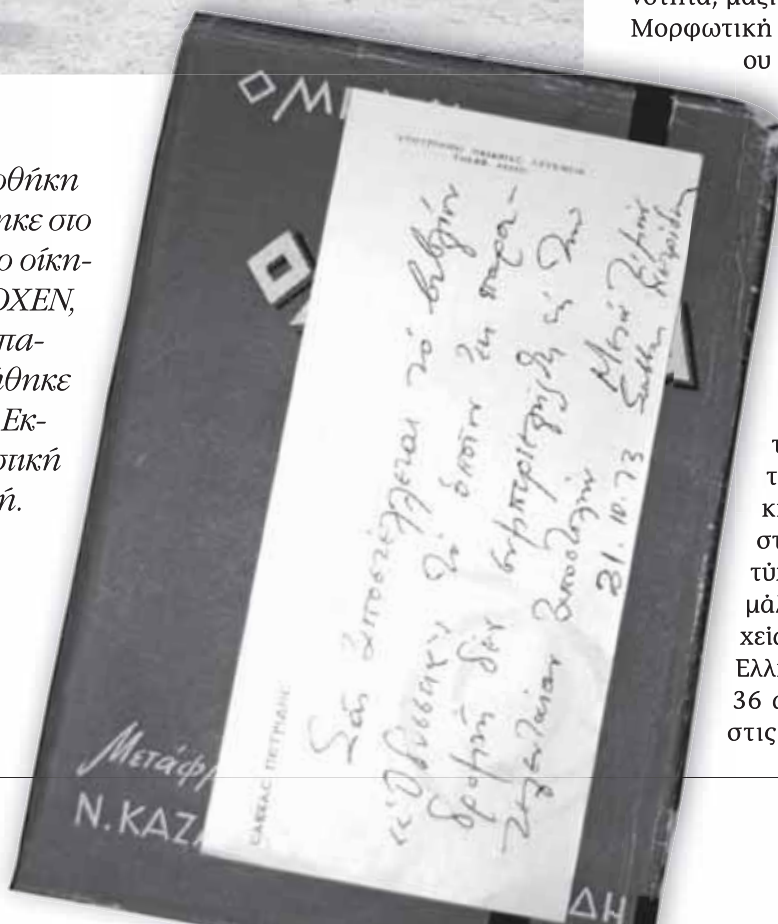 νότητα, μαζί
Μορφωτική
ου
οθήκη
ηκε στο
ο οίκη-
ΟΧΕΝ,
πα-
ήθηκε
Εκ-
στική
ή.
ΟΜΗΡ
Μετάφρ
Ν.ΚΑΖ
ΔΗ
ΣΑΒΒΑΣ ΠΕΤΡΙΔΗΣ
Σᾶς ἀποστέλλεται τό βιβλίον
«Ὀδύσσεια» τό ὁποῖον ἐκ παρα-
δρομῆς δέν συμπεριελήφθη εἰς τήν
τελευταίαν ἀποστολήν
Μετά τιμῆς
Σάββας Πετρίδης
31.10.73
τ
τ
κ
στ
τύ
μάλ
χεία
Ελλη
36 α
στις